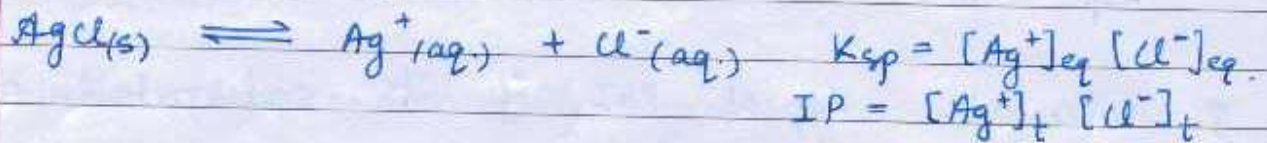 AgCl(s) ⇌ Ag⁺(aq.) + Cl⁻(aq.) Ksp = [Ag⁺]eq [Cl⁻]eq.
IP = [Ag⁺]t [Cl⁻]t